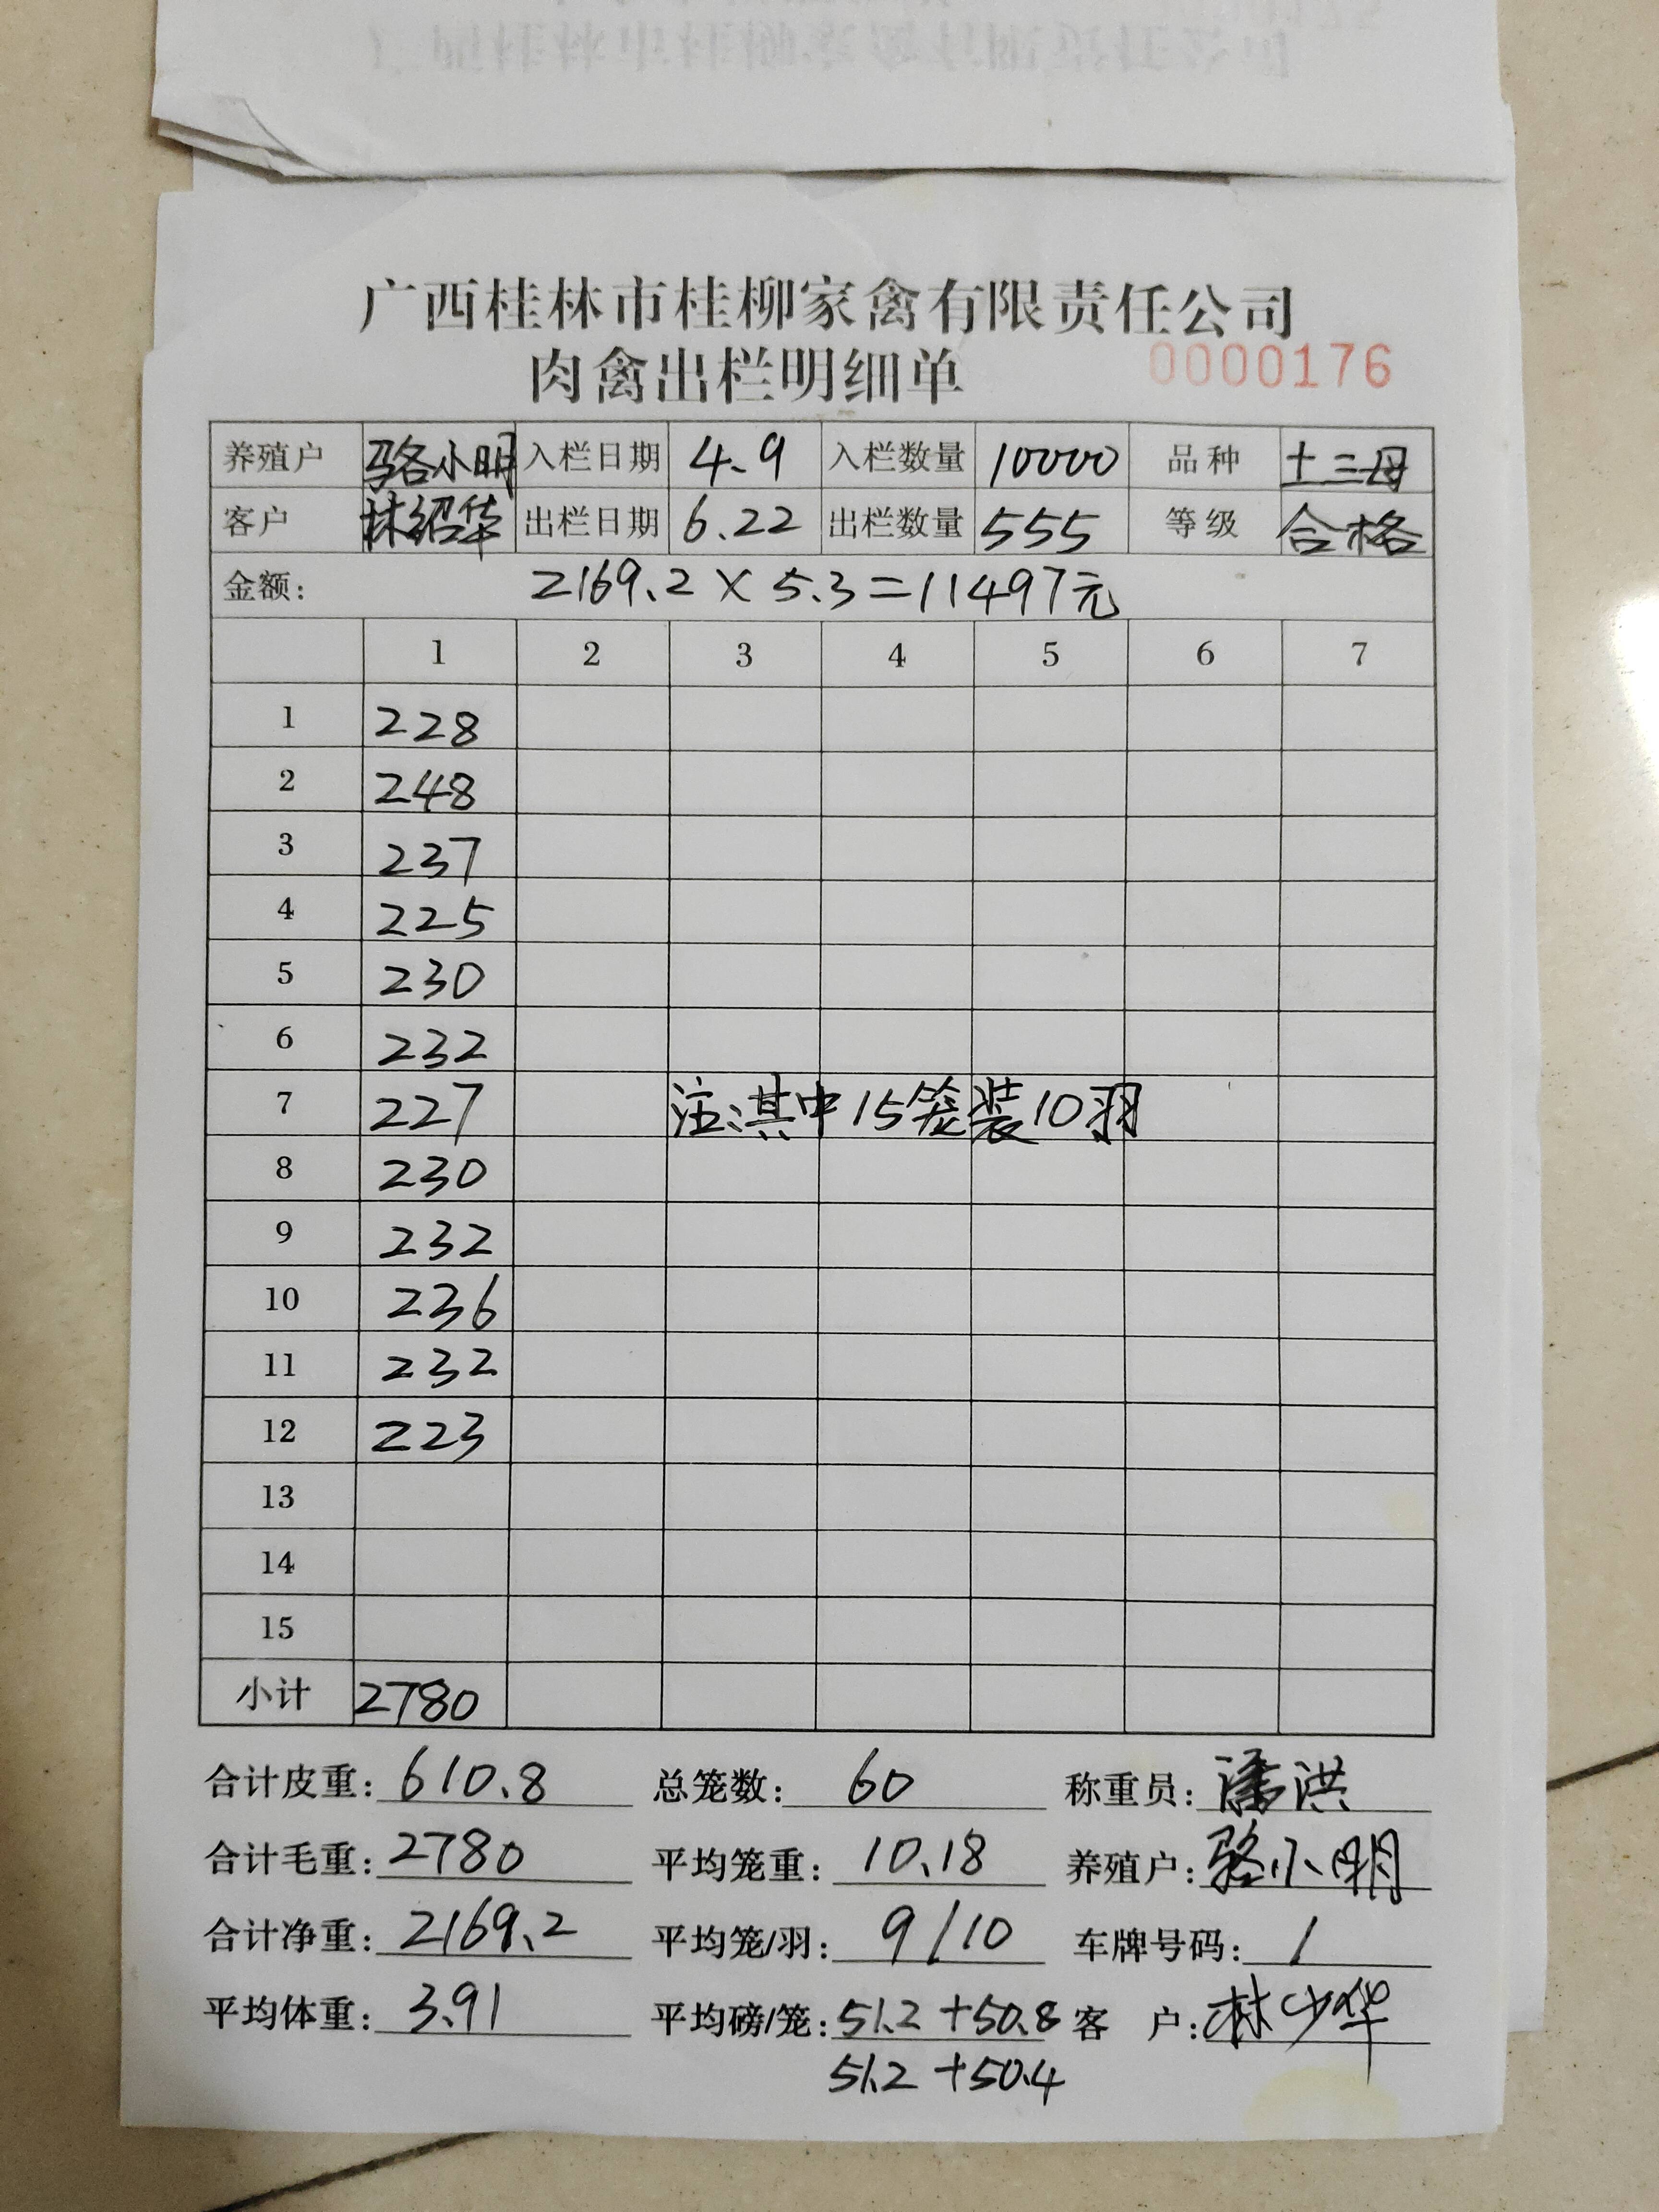 广西桂林市桂柳家禽有限责任公司
肉禽出栏明细单 0000176
养殖户 骆小明 入栏日期 4.9 入栏数量 10000 品种 土三母
客户 林绍华 出栏日期 6.22 出栏数量 555 等级 合格
金额: 2169.2×5.3=11497元
1 2 3 4 5 6 7
1 228
2 248
3 237
4 225
5 230
6 232
7 227 注:其中15笼装10羽
8 230
9 232
10 236
11 232
12 223
13
14
15
小计 2780
合计皮重: 610.8 总笼数: 60 称重员: 潘洪
合计毛重: 2780 平均笼重: 10.18 养殖户: 骆小明
合计净重: 2169.2 平均笼/羽: 9/10 车牌号码: /
平均体重: 3.91 平均磅/笼: 51.2+50.8 客 户: 林少华
51.2+50.4